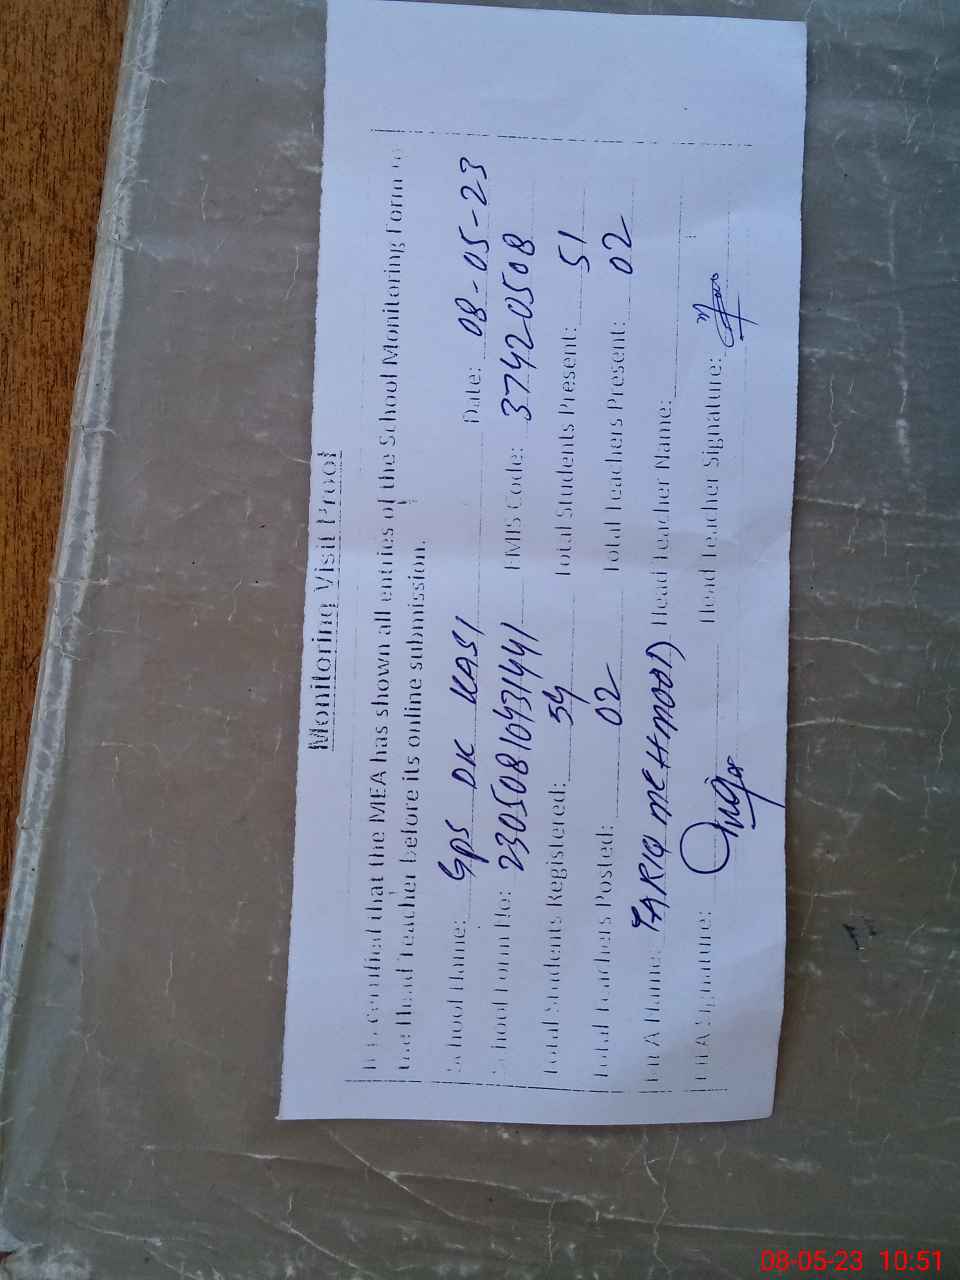 Monitoring Visit Proof
It is certified that the MEA has shown all entries of the School Monitoring Form to
the Head Teacher before its online submission.
School Name: GPS DK KASI Date: 08-05-23
School Form No: 2305081093 1441 EMIS Code: 37420508
Total Students Registered: 54 Total Students Present: 51
Total Teachers Posted: 02 Total Teachers Present: 02
MEA Name: TARIQ MEHMOOD Head Teacher Name:
MEA Signature: Head Teacher Signature:
08-05-23 10:51